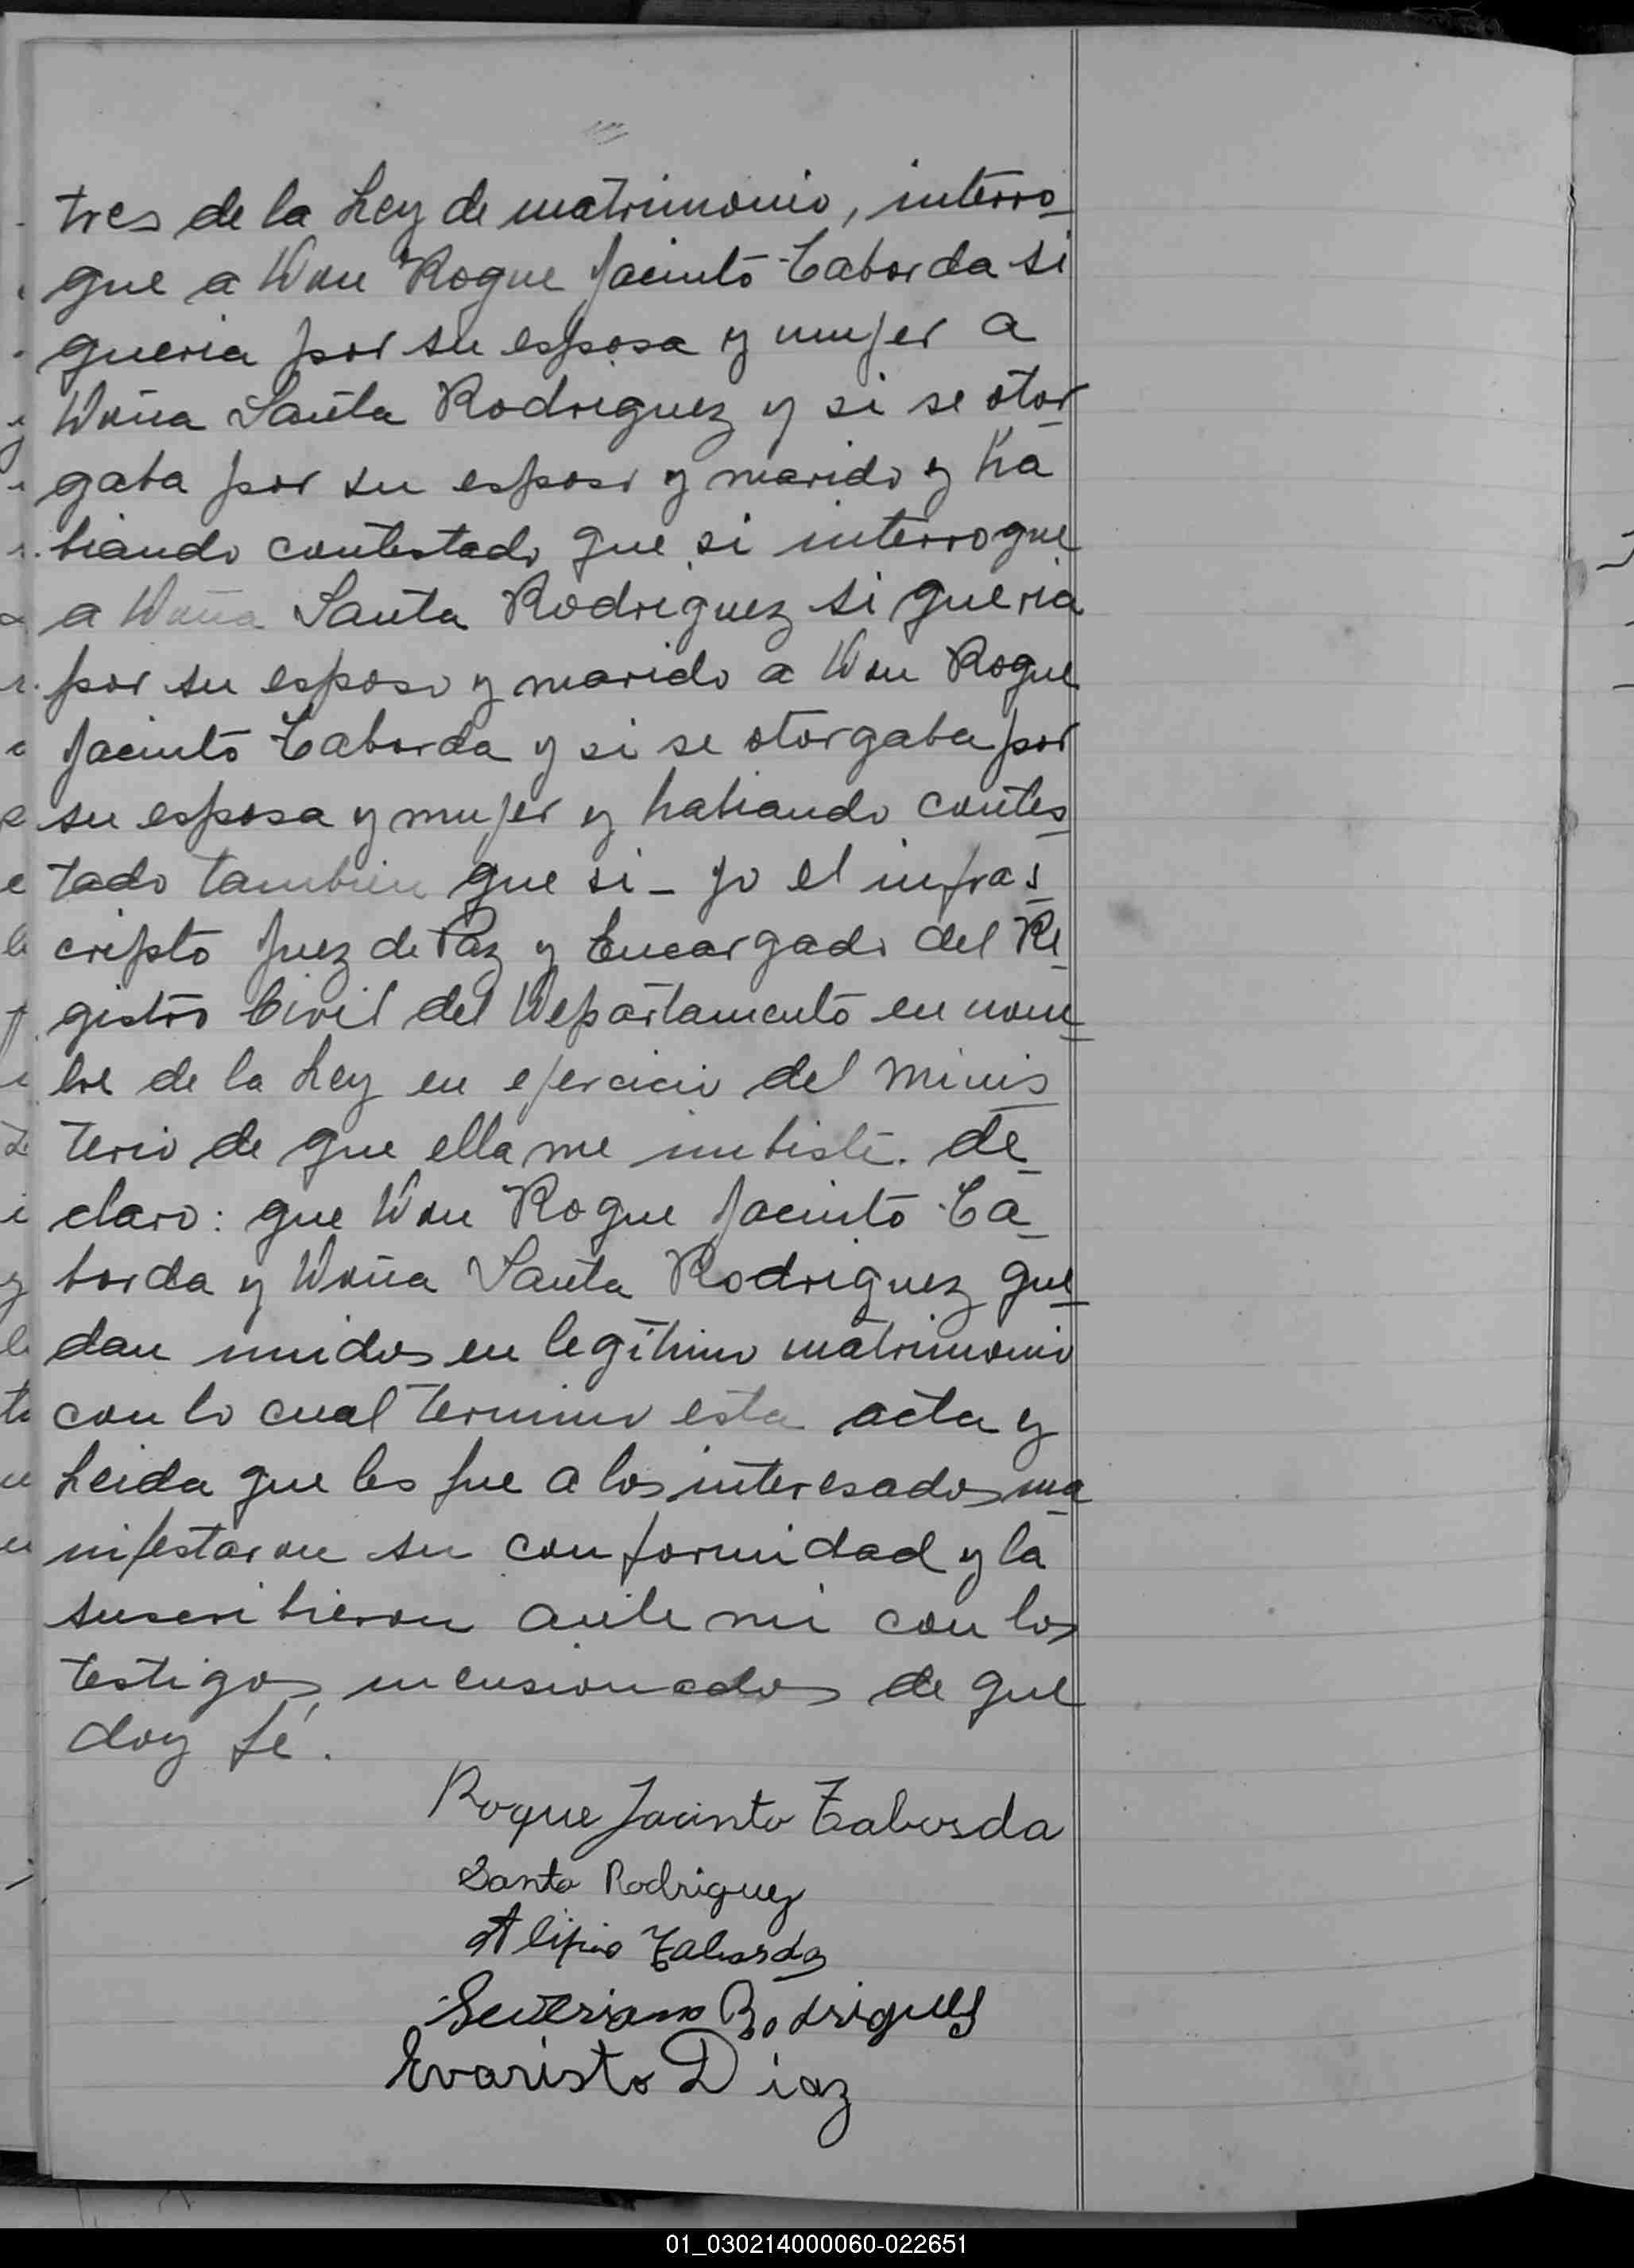 tres de la Ley de matrimonio, interro-
gue a Don Roque Jacinto Taborda si
queria por su esposa y mujer a
Doña Santa Rodriguez y si se otor-
gaba por su esposo y marido y ha
biando contestado que si interrogue
a Doña Santa Rodriguez si queria
por su esposo y marido a Don Roque
Jacinto Taborda y si se otorgaba por
su esposa y mujer y habiando contes-
tado tambien que si - yo el infras-
cripto Juez de Paz y Encargado del Re-
gistro Civil del Departamento en nom-
bre de la Ley en ejercicio del minis-
terio de que ella me imbiste. de-
claro: que Don Roque Jacinto Ta-
borda y Doña Santa Rodriguez que-
dan unidos en legítimo matrimonio
con lo cual termino esta acta y
Leida que les fue a los interesados ma-
nifestaron su conformidad y la
suscribieron ante mi con los
testigos mensionados de que
doy fé.
Roque Jacinto Taborda
Santa Rodriguez
Alipio Taborda
Severiano Rodrigues
Evaristo Diaz
01_030214000060-022651